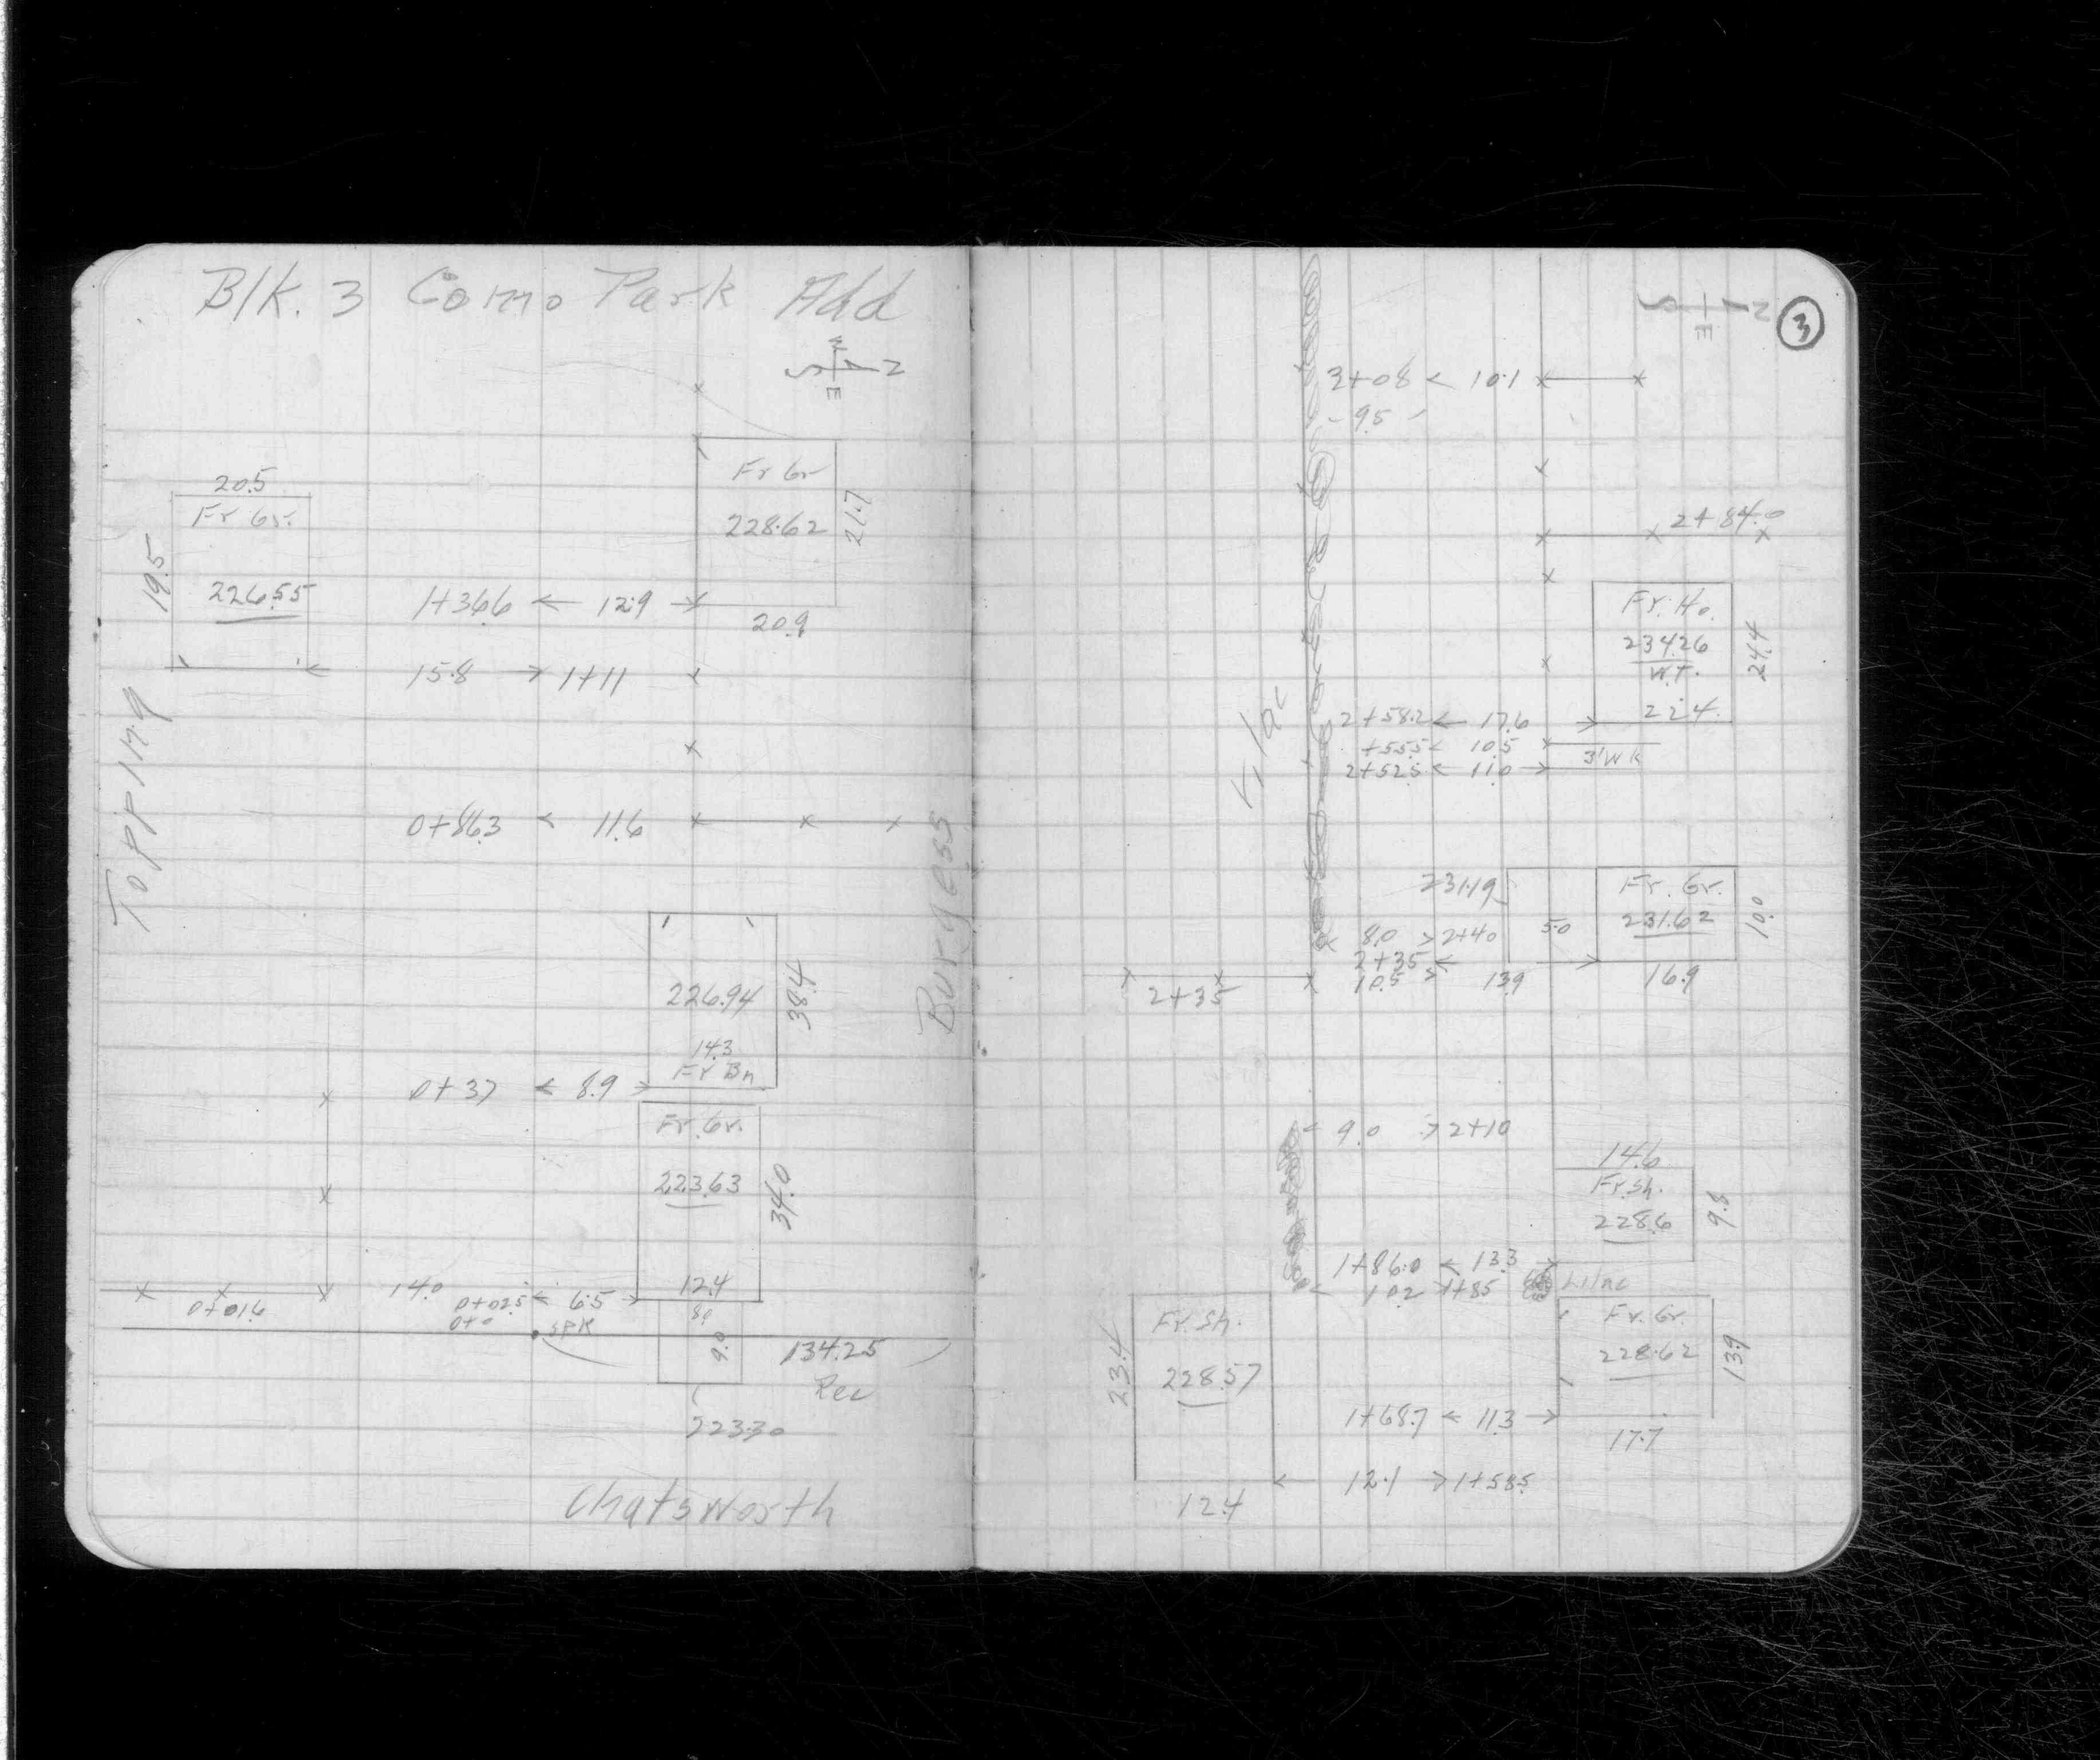 Blk. 3 Como Park Add
W
S N
E
20.5
Fr Gr.
19.5
226.55
Fr Gr
228.62
21.7
1+36.6 ← 12.9 →
20.9
← 15.8 → 1+11
0+86.3 < 11.6
Burgess
226.94
38.4
14.3
Fr Bn
0+37 < 8.9 >
Fr. Gr.
223.63
34.0
12.4
14.0 0+02.5 < 6.5 >
0+01.6
0+0
SPK
8.0
9.0
134.25
Rec
223.30
Chatsworth
3
N
S
E
3+08 < 10.1
- 9.5 -
2+84.0
Fr. Ho.
234.26
W.T.
24.4
22.4
Lilac
2+58.2 ← 17.6 →
+55.5 < 10.5
2+52.5 < 11.0 →
3' Wk
231.19
Fr. Gr.
231.62
10.0
5.0
< 8.0 > 2+40
2+35 ←
10.5 >
13.9
16.9
2+35
< 9.0 > 2+10
14.6
Fr. Sh.
228.6
9.8
1+86.0 < 13.3
< 10.2 > 1+85
Lilac
Fr. Sh.
228.57
23.4
Fr. Gr.
228.62
13.9
1+68.7 < 11.3 →
17.7
← 12.1 → 1+58.5
12.4